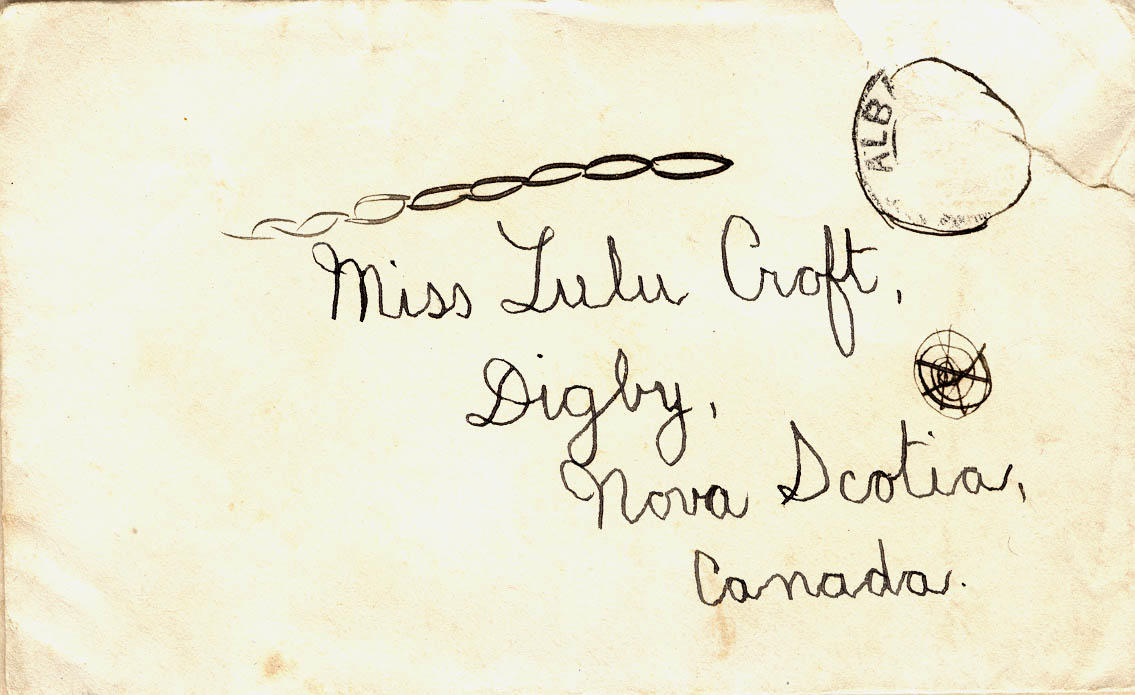 ALBA
Miss Lulu Croft,
Digby,
Nova Scotia,
Canada.